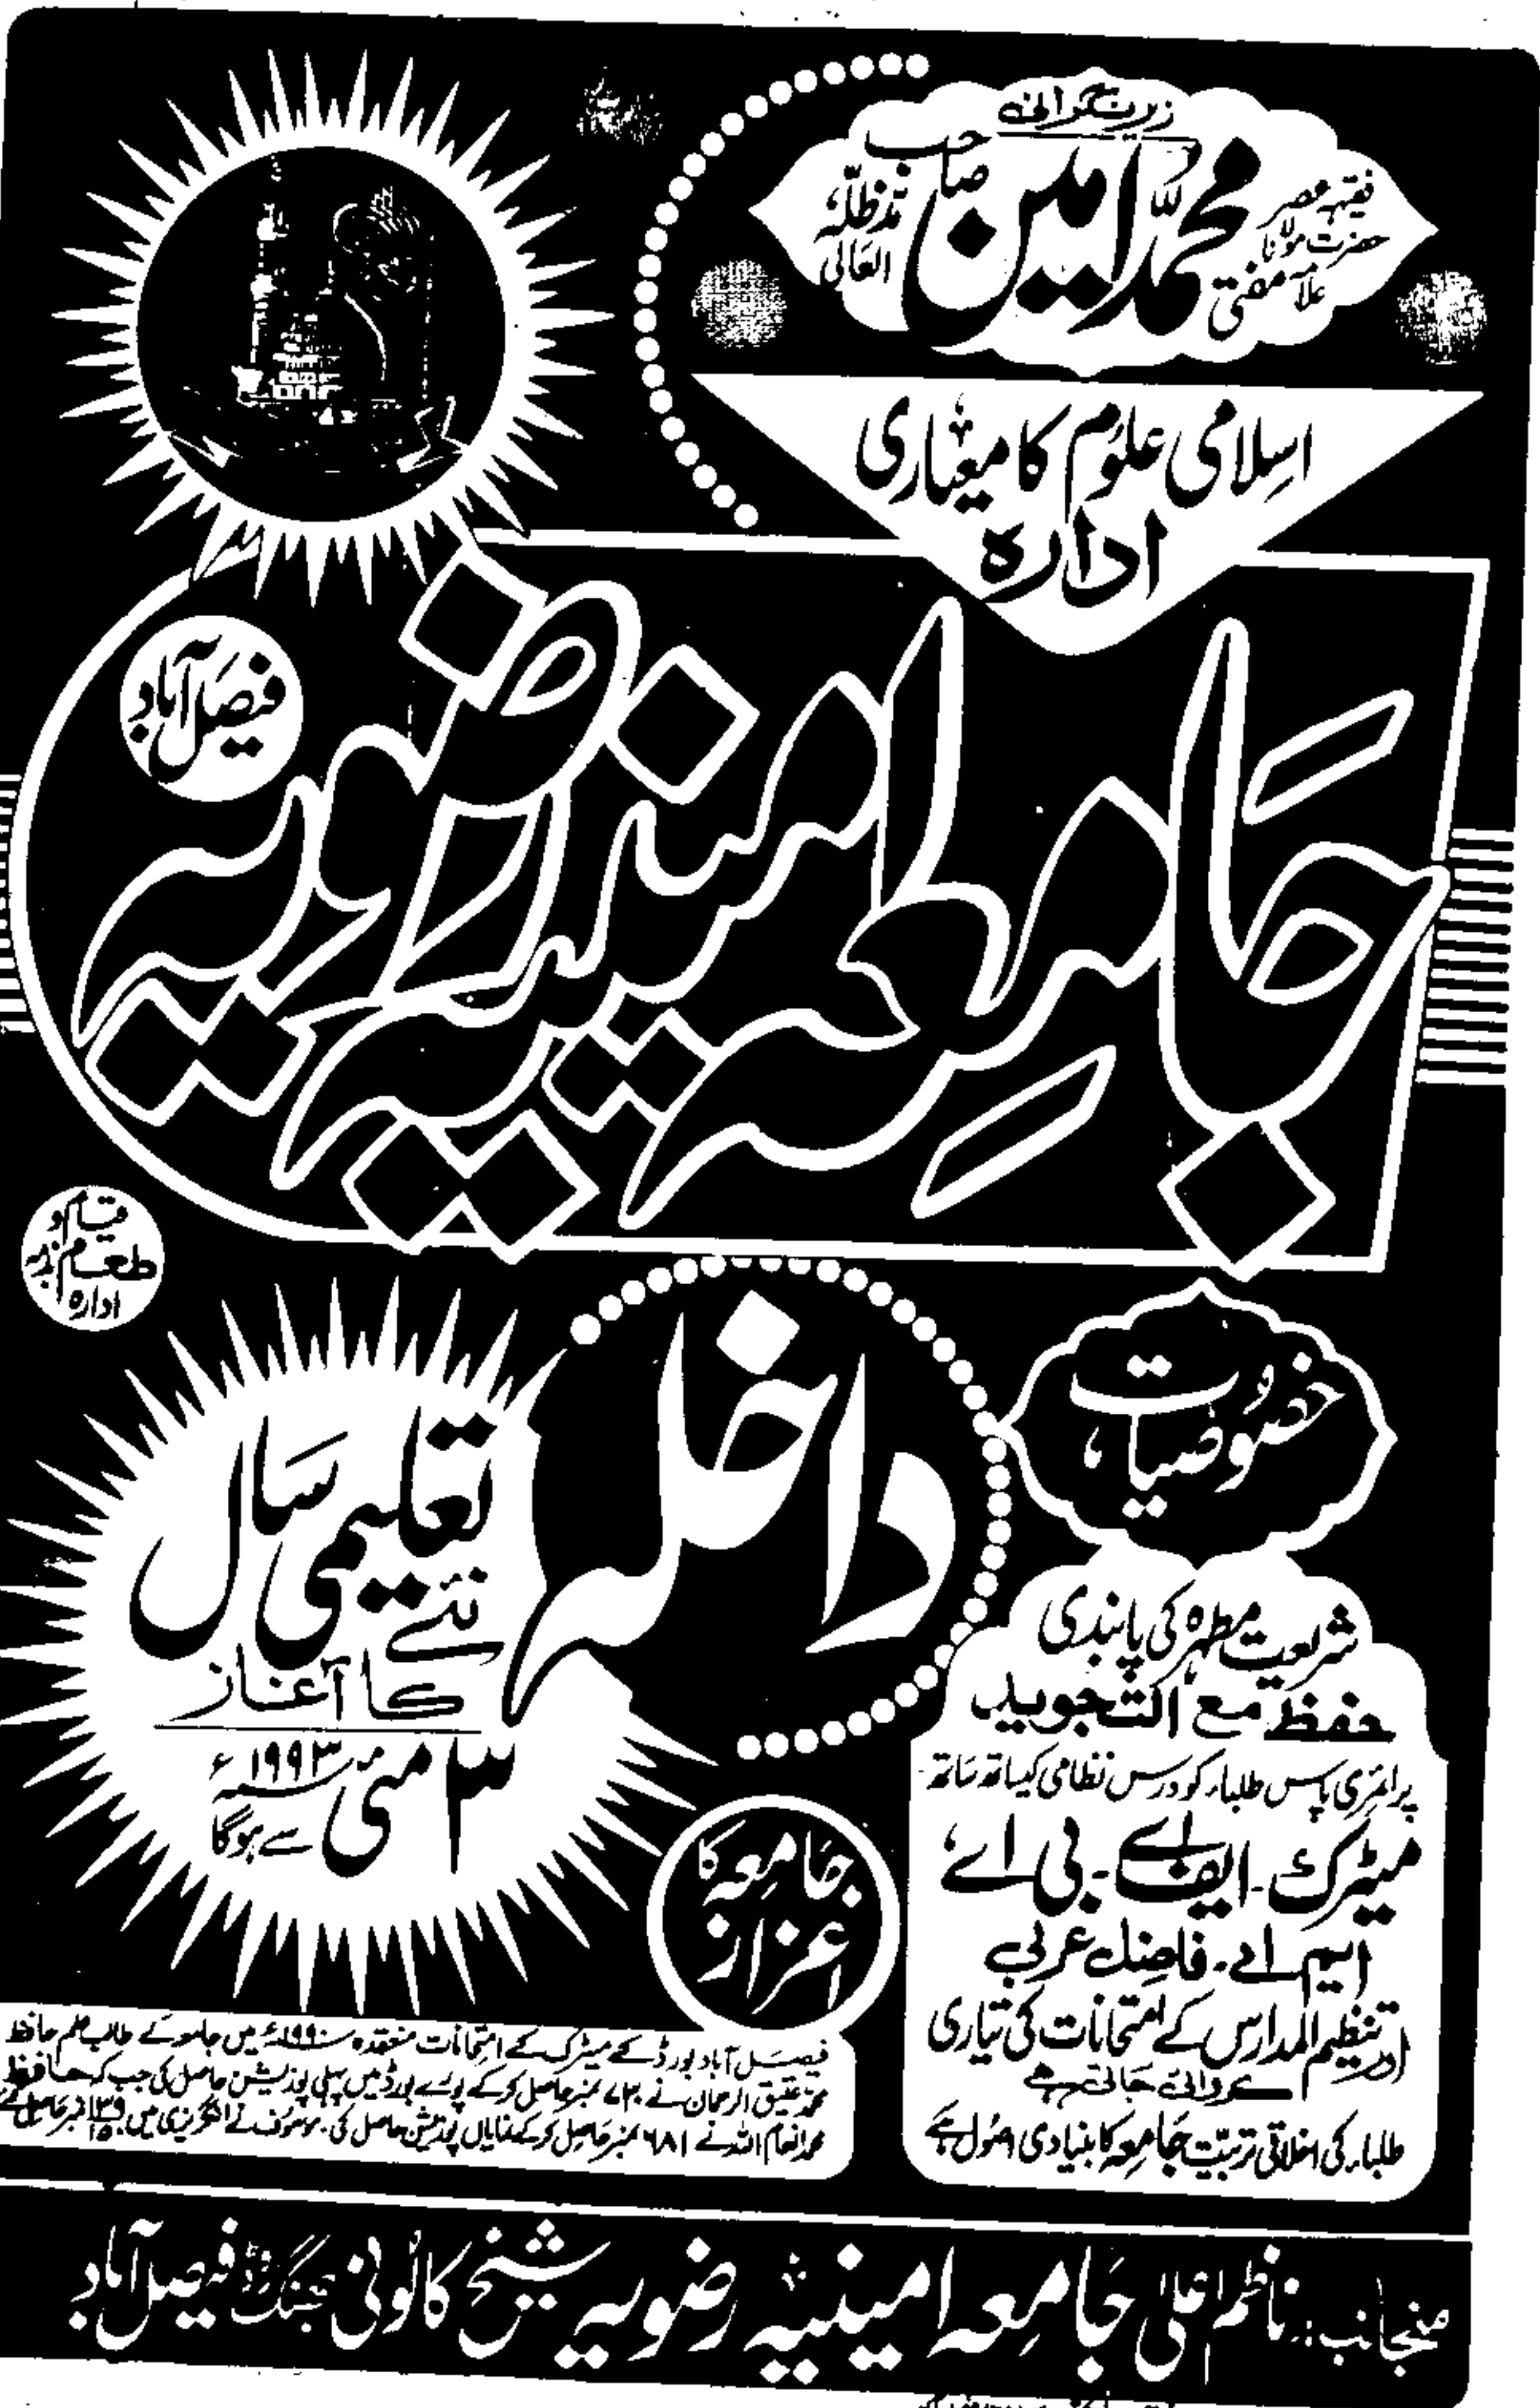 زیرِ نگرانی
فقیہہ عصر حضرت مولانا علامہ مفتی محمد امین صاحب مدظلہ العالی
اسلامی علوم کا معیاری
ادارہ
جامعہ امینیہ رضویہ
فیصل آباد
قیام و
طعام بذمہ
ادارہ
داخلہ
نئے تعلیمی سال
کا آغاز
۳ مئی ۱۹۹۳ء
سے ہوگا
خصوصیات
شریعت مطہرہ کی پابندی
حفظ مع التجوید
پرائمری پاس طلباء کو درس نظامی کیساتھ ساتھ
میٹرک - ایف اے - بی اے،
ایم اے - فاضل عربی
اور تنظیم المدارس کے امتحانات کی تیاری
کروائی جاتی ہے
طلباء کی اخلاقی تربیت جامعہ کا بنیادی اصول ہے
جامعہ کا
اعزاز
فیصل آباد بورڈ کے میٹرک کے امتحانات منعقدہ ۱۹۹۰ء میں جامعہ کے طالب علم حافظ
محمد عتیق الرحمان نے ۷۳۰ نمبر حاصل کر کے پورے بورڈ میں پہلی پوزیشن حاصل کی جب کہ حافظ
محمد انعام اللہ نے ۶۸۱ نمبر حاصل کر کے نمایاں پوزیشن حاصل کی۔ موصوف نے انگریزی میں نمبر حاصل کئے
منجانب:۔ ناظم اعلیٰ جامعہ امینیہ رضویہ شیخ کالونی جھنگ روڈ فیصل آباد